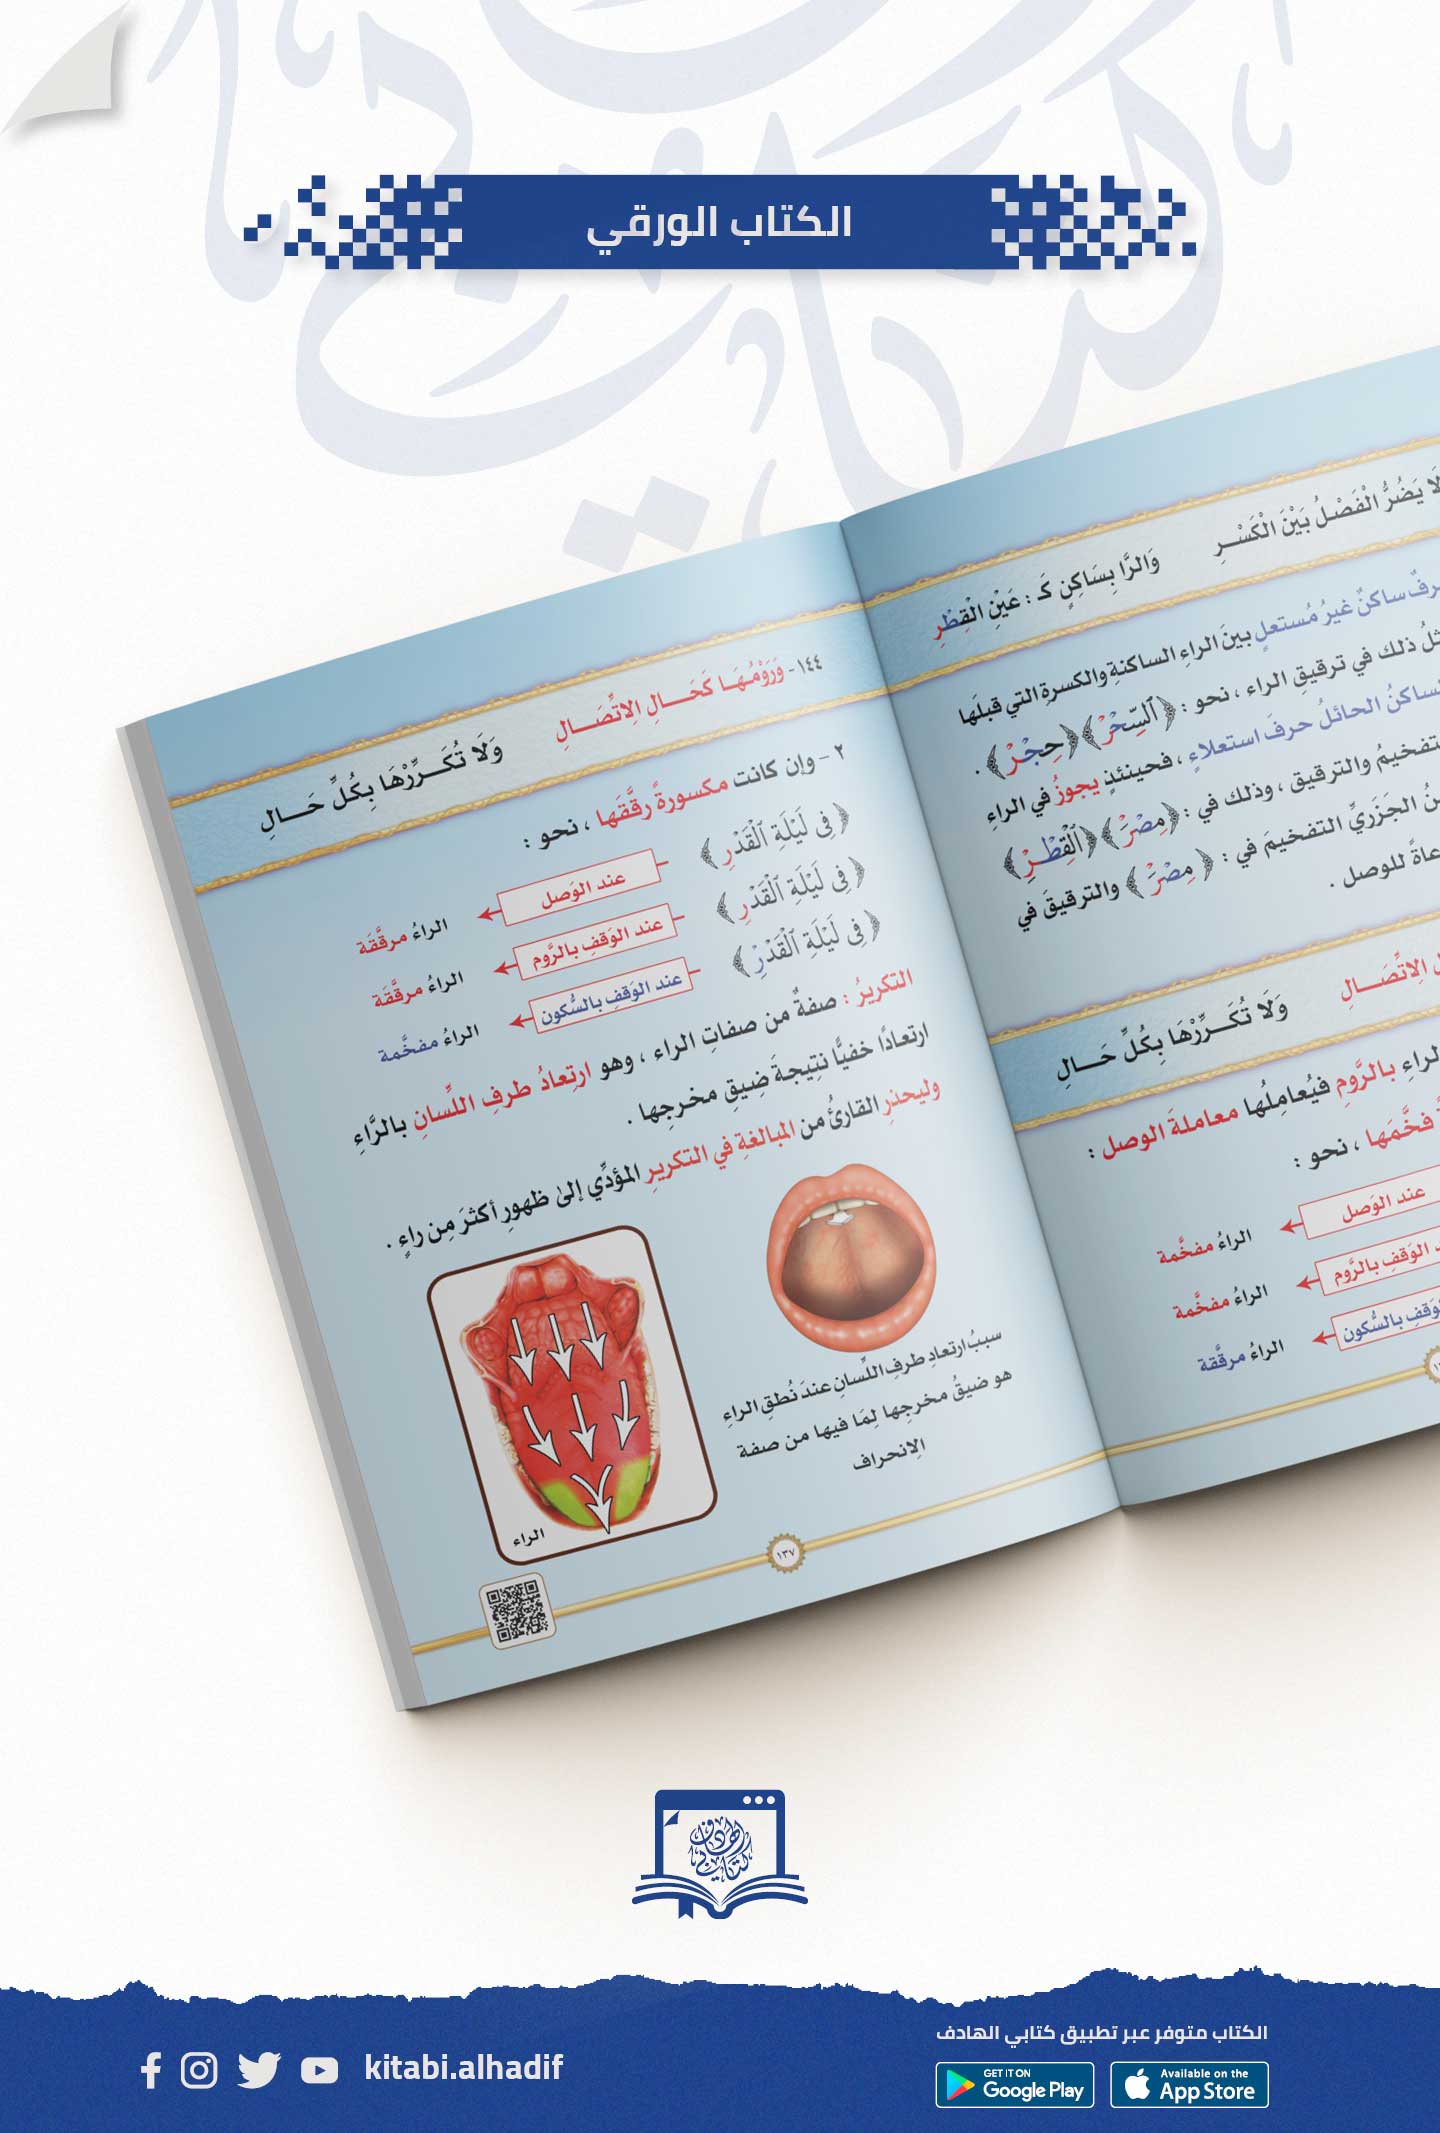 الكتاب الورقي
لَا يَضُرُّ الْفَصْلُ بَيْنَ الْكَسْرِ
وَالرَّا بِسَاكِنٍ كَـ : عَيْنِ الْقِطْرِ
ساكنٌ غيرُ مُستعلٍ بينَ الراءِ الساكنةِ والكسرةِ التي قبلَها
ذلك في ترقيقِ الراء ، نحو : ﴿ ٱلسِّحْرْ ﴾ ﴿ حِجْرْ ﴾ .
الحائلُ حرفَ استعلاءٍ ، فحينئذٍ يجوزُ في الراءِ
والترقيق ، وذلك في : ﴿ مِصْرْ ﴾ ﴿ ٱلْقِطْرْ ﴾
الجَزَريِّ التفخيمَ في : ﴿ مِصْرَ ﴾ والترقيقَ في
للوصل .
الِاتِّصَـــالِ
وَلَا تُكَــرِّرْهَا بِكُلِّ حَـــالِ
بالرَّومِ فيُعامِلُها معاملةَ الوصل :
فخَّمَها ، نحو :
عند الوَصل
الراءُ مفخَّمة
الوَقفِ بالرَّوم
الراءُ مفخَّمة
بالسُّكون
الراءُ مرقَّقة
١٤٤- وَرَوْمُـهَـا كَحَـــالِ الِاتِّصَـــالِ
وَلَا تُكَــرِّرْهَا بِكُلِّ حَـــالِ
٢ - وإن كانت مكسورةً رقَّقَها ، نحو :
﴿ فِى لَيْلَةِ ٱلْقَدْرِ ﴾
عند الوَصل
الراءُ مرقَّقَة
﴿ فِى لَيْلَةِ ٱلْقَدْرِ ﴾
عند الوَقفِ بالرَّوم
الراءُ مرقَّقَة
﴿ فِى لَيْلَةِ ٱلْقَدْرْ ﴾
عند الوَقفِ بالسُّكون
الراءُ مفخَّمة
التكريرُ : صفةٌ من صفاتِ الراء ، وهو ارتِعادُ طرفِ اللِّسانِ بالرَّاءِ
ارتعادًا خفيًّا نتيجةَ ضِيقِ مخرجِها .
وليحذرِ القارئُ من المبالغةِ في التكريرِ المؤدِّي إلىٰ ظهورِ أكثرَ مِن راءٍ .
سببُ ارتعادِ طرفِ اللِّسانِ عندَ نُطقِ الراءِ
هو ضيقُ مخرجِها لِمَا فيها من صفة
الِانحراف
الراء
١٣٧
كتابي الهادف
الكتاب متوفر عبر تطبيق كتابي الهادف
kitabi.alhadif
GET IT ON
Google Play
Available on the
App Store